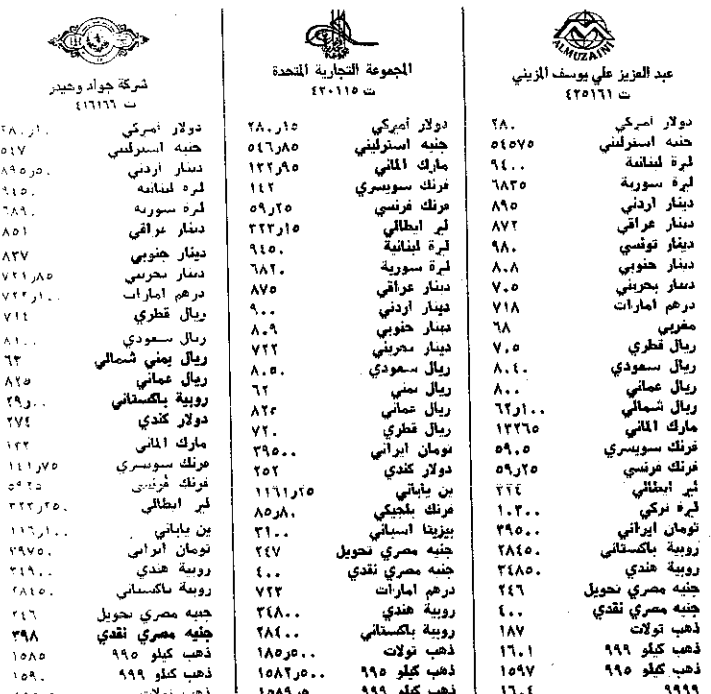 ALMUZAINI
عبد العزيز علي يوسف المزيني
ت ٤٢٥١٦١
دولار أمركي ٢٨٠
جنيه استرليني ٥٤٥٧٥
ليرة لبنانية ٩٤٠٠
ليرة سورية ٦٨٢٥
دينار أردني ٨٩٥
دينار عراقي ٨٧٢
دينار تونسي ٩٨٠
دينار جنوبي ٨٠٨
دينار بحريني ٧٠٥
درهم امارات ٧١٨
مغربي ٦٨
ريال قطري ٧٫٥
ريال سعودي ٨٠٤٠
ريال عماني ٨٠٠
ريال شمالي ٦٢٫١٠٠
مارك الماني ١٣٢٦٥
فرنك سويسري ٥٩٫٥
فرنك فرنسي ٥٩٫٢٥
لير ايطالي ٢٢٤
ليرة تركي ١٠٣٠٠
تومان ايراني ٣٩٥٠٠
روبية باكستاني ٢٨٤٥٠
روبية هندي ٣٤٨٥٠
جنيه مصري تحويل ٢٤٦
جنيه مصري نقدي ٤٠٠
ذهب تولات ١٨٧
ذهب كيلو ٩٩٩ ١٦٠١
ذهب كيلو ٩٩٥ ١٥٩٧
٩٩٩٩ ١٦٠٤
المجموعة التجارية المتحدة
ت ٤٢٠١١٥
دولار أميركي ٢٨٠٫١٥
جنيه استرليني ٥٤٦٫٨٥
مارك الماني ١٣٢٫٩٥
فرنك سويسري ١٤٢
فرنك فرنسي ٥٩٫٢٥
لير ايطالي ٣٢٣٫١٥
ليرة لبنانية ٩٤٥٠
ليرة سورية ٦٨٢٠
دينار عراقي ٨٧٥
دينار أردني ٩٠٠
دينار جنوبي ٨٠٩
دينار بحريني ٧٢٢
ريال سعودي ٨٠٥٠
ريال يمني ٦٢
ريال عماني ٨٢٥
ريال قطري ٧٢٠
تومان ايراني ٣٩٥٠٠
دولار كندي ٢٥٢
ين ياباني ١١٦١٫٢٥
فرنك بلجيكي ٨٥٫٨٠
بيزيتا اسباني ٣١٠٠
جنيه مصري تحويل ٢٤٧
جنيه مصري نقدي ٤٠٠
درهم امارات ٧٢٣
روبية هندي ٣٤٨٠٠
روبية باكستاني ٢٨٤٠٠
ذهب تولات ١٨٥٫٥٠٠
ذهب كيلو ٩٩٥ ١٥٨٢٫٥٠٠
ذهب كيلو ٩٩٩
شركة جواد وحيدر
ت ٤١٦١٦٦
دولار أمركي
جنيه استرليني ٥٤٧
دينار أردني
ليرة لبنانية ٩٤٥٠
ليرة سورية ٦٨٩٠
دينار عراقي ٨٥١
دينار جنوبي ٨٣٧
دينار بحريني ٧٢١٫٨٥
درهم امارات
ريال قطري ٧١٤
ريال سعودي ٨١٠٠
ريال يمني شمالي ٦٣
ريال عماني ٨٢٥
روبية باكستاني ٢٩٫٠٠
دولار كندي ٢٧٤
مارك الماني ١٣٣
فرنك سويسري ١٤١٫٧٥
فرنك فرنسي ٥٩٢٥
لير ايطالي ٣٢٣٫٢٥٠
ين ياباني ١١٦٫١٠٠
تومان ايراني ٣٩٧٥٠
روبية هندي ٣٤٩٠٠
روبية باكستاني ٢٨٤٥٠
جنيه مصري تحويل ٢٤٦
جنيه مصري نقدي ٣٩٨
ذهب كيلو ٩٩٥ ١٥٨٥
ذهب كيلو ٩٩٩ ١٥٩٠
ذهب تولات